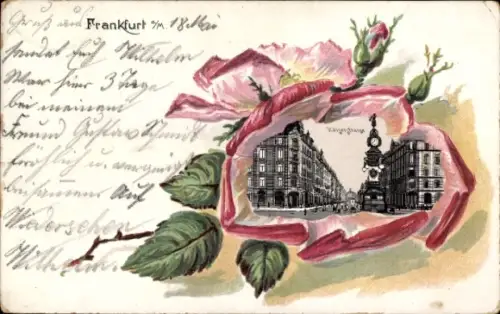 Gruß aus Frankfurt a/M. 18 Mai
sendet Euch Wilhelm
War hier 3 Tage
bei meinem
Freund Gustav Schmidt
fröhlich u. vergnügt
beisammen Auf
Wiedersehen
Wilhelm.
Kaiserstrasse